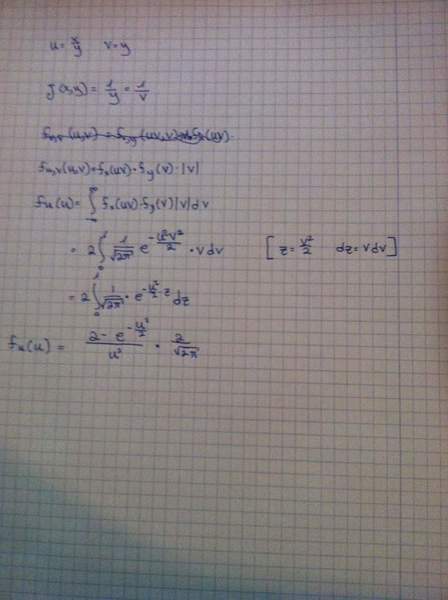 u = x/y   v = y
J(x,y) = 1/y = 1/v
f_{u,v}(u,v) = f_x(uv) · f_y(v) · |v|
f_u(u) = ∫_{-∞}^{∞} f_x(uv) · f_y(v) |v| dv
= 2 ∫_0^1 1/√(2π) e^{-u²v²/2} · v dv   [ z = v²/2   dz = v dv ]
= 2 ∫_0^1 1/√(2π) · e^{-u²·z} dz
f_u(u) = (2 - e^{-u²/2})/u² · 2/√(2π)